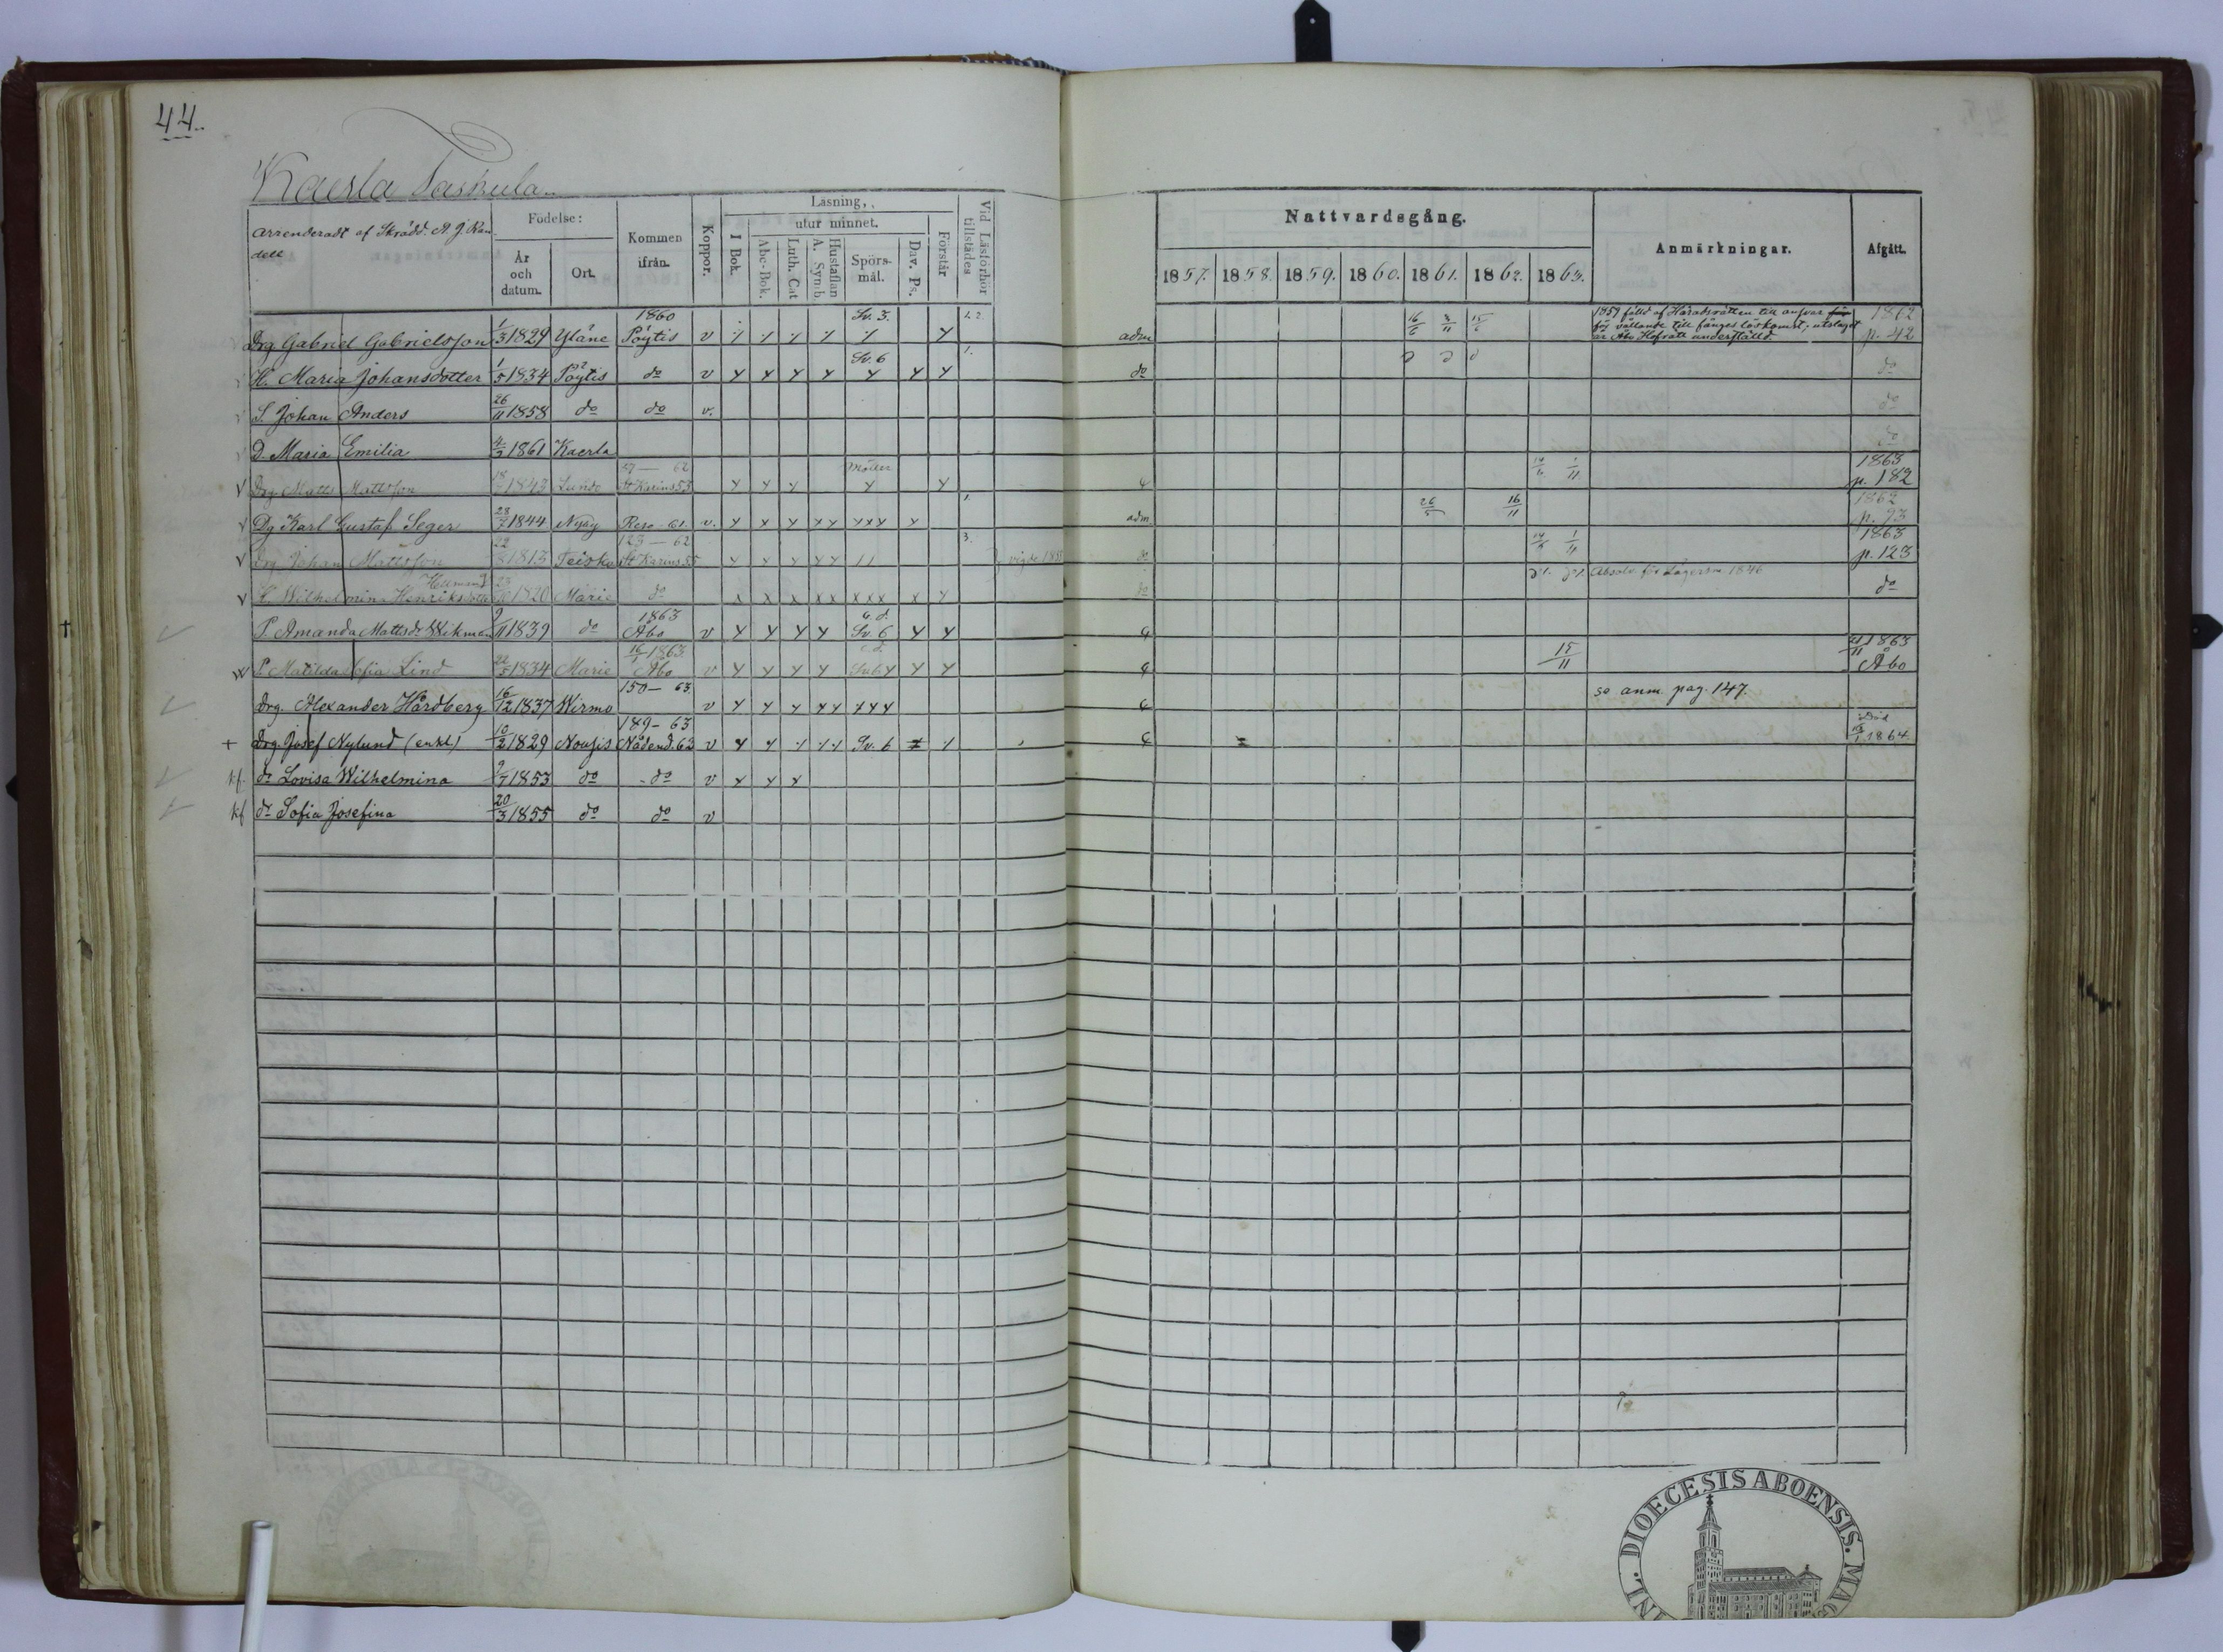 44.
Kaerla Taskula.
arrenderadt af Skrädd. A. J. Ran
dell
Födelse:
År
och
datum.
Ort.
Kommen
ifrån.
Koppor.
Läsning,
utur minnet.
I Bok.
Abc-Bok.
Luth. Cat
A. Symb.
Hustaflan
Spörs-
mål.
Dav. Ps.
Förstår
Vid Läsförhör
tillstädes
Nattvardsgång.
1857. 1858. 1859. 1860. 1861. 1862. 1863.
Anmärkningar.
Afgått.
Drg Gabriel Gabrielsson 1/3 1829 Yläne 1860 Pöytis v Sv. 3. 1. 2. adm 16/6 3/11 15/6
1859 fälld af Häradsrätten till ansvar för
för vållande till fånges löskomst; utslaget
är Åbo Hofrätt underställd.
1862
p. 42
H. Maria Johansdotter 1/5 1834 Pöytis do v Sv. 6 1. do do
S. Johan Anders 26/11 1858 do do v. do
D. Maria Emilia 4/3 1861 Kaerla do
Drg Matts Mattsson 1843 Lundo 27 — 62 St Karins 53 1863 p. 182
Dg Karl Gustaf Seger 28/2 1844 Nyby Reso 61. v. 1. adm 26/5 16/11 1862 p. 93
Drg Johan Mattsson 1813 Teiskо 123 — 62 St Karins 55 3. vigde 18 do 1/11 1863 p. 123
H. Wilhelmin Henriksdotter Hellman 1820 Marie do do Absolv. för Lägersm. 1846 do
P. Amanda Mattsdr Wikman 9/11 1839 do 1863 Åbo v Sv. 6
P. Matilda Sofia Lind 22/5 1834 Marie 16/1 1863. Åbo v Sv. 6 15/11 21/11 1863 Åbo
Drg. Alexander Hårdberg 16/12 1837 Wirmo 150 — 63. v se anm. pag. 147.
† Drg. Josef Nylund (enkl.) 10/2 1829 Nousis 189 - 63 Nådend. 62 v Sv. 6 Död 1864
kf. dr Lovisa Wilhelmina 9/7 1853 do do v
kf dr Sofia Josefina 20/3 1855 do do v
DIOECESIS ABOENSIS. MA